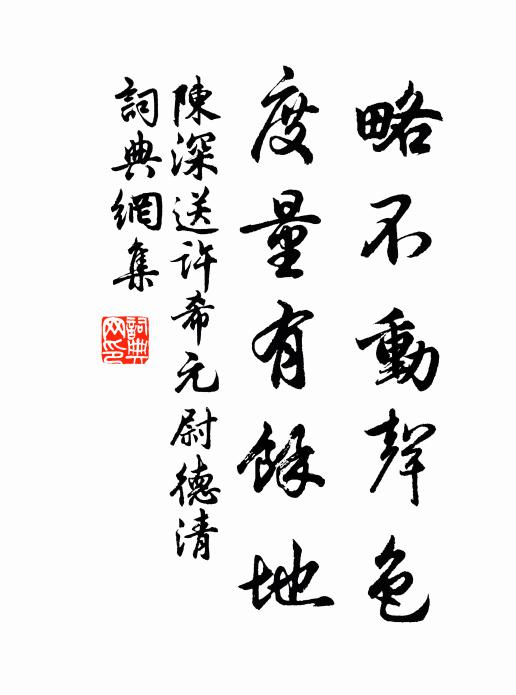 略不動聲色
度量有餘地
陳深送許希元尉德清
詞典網集
詞典网印